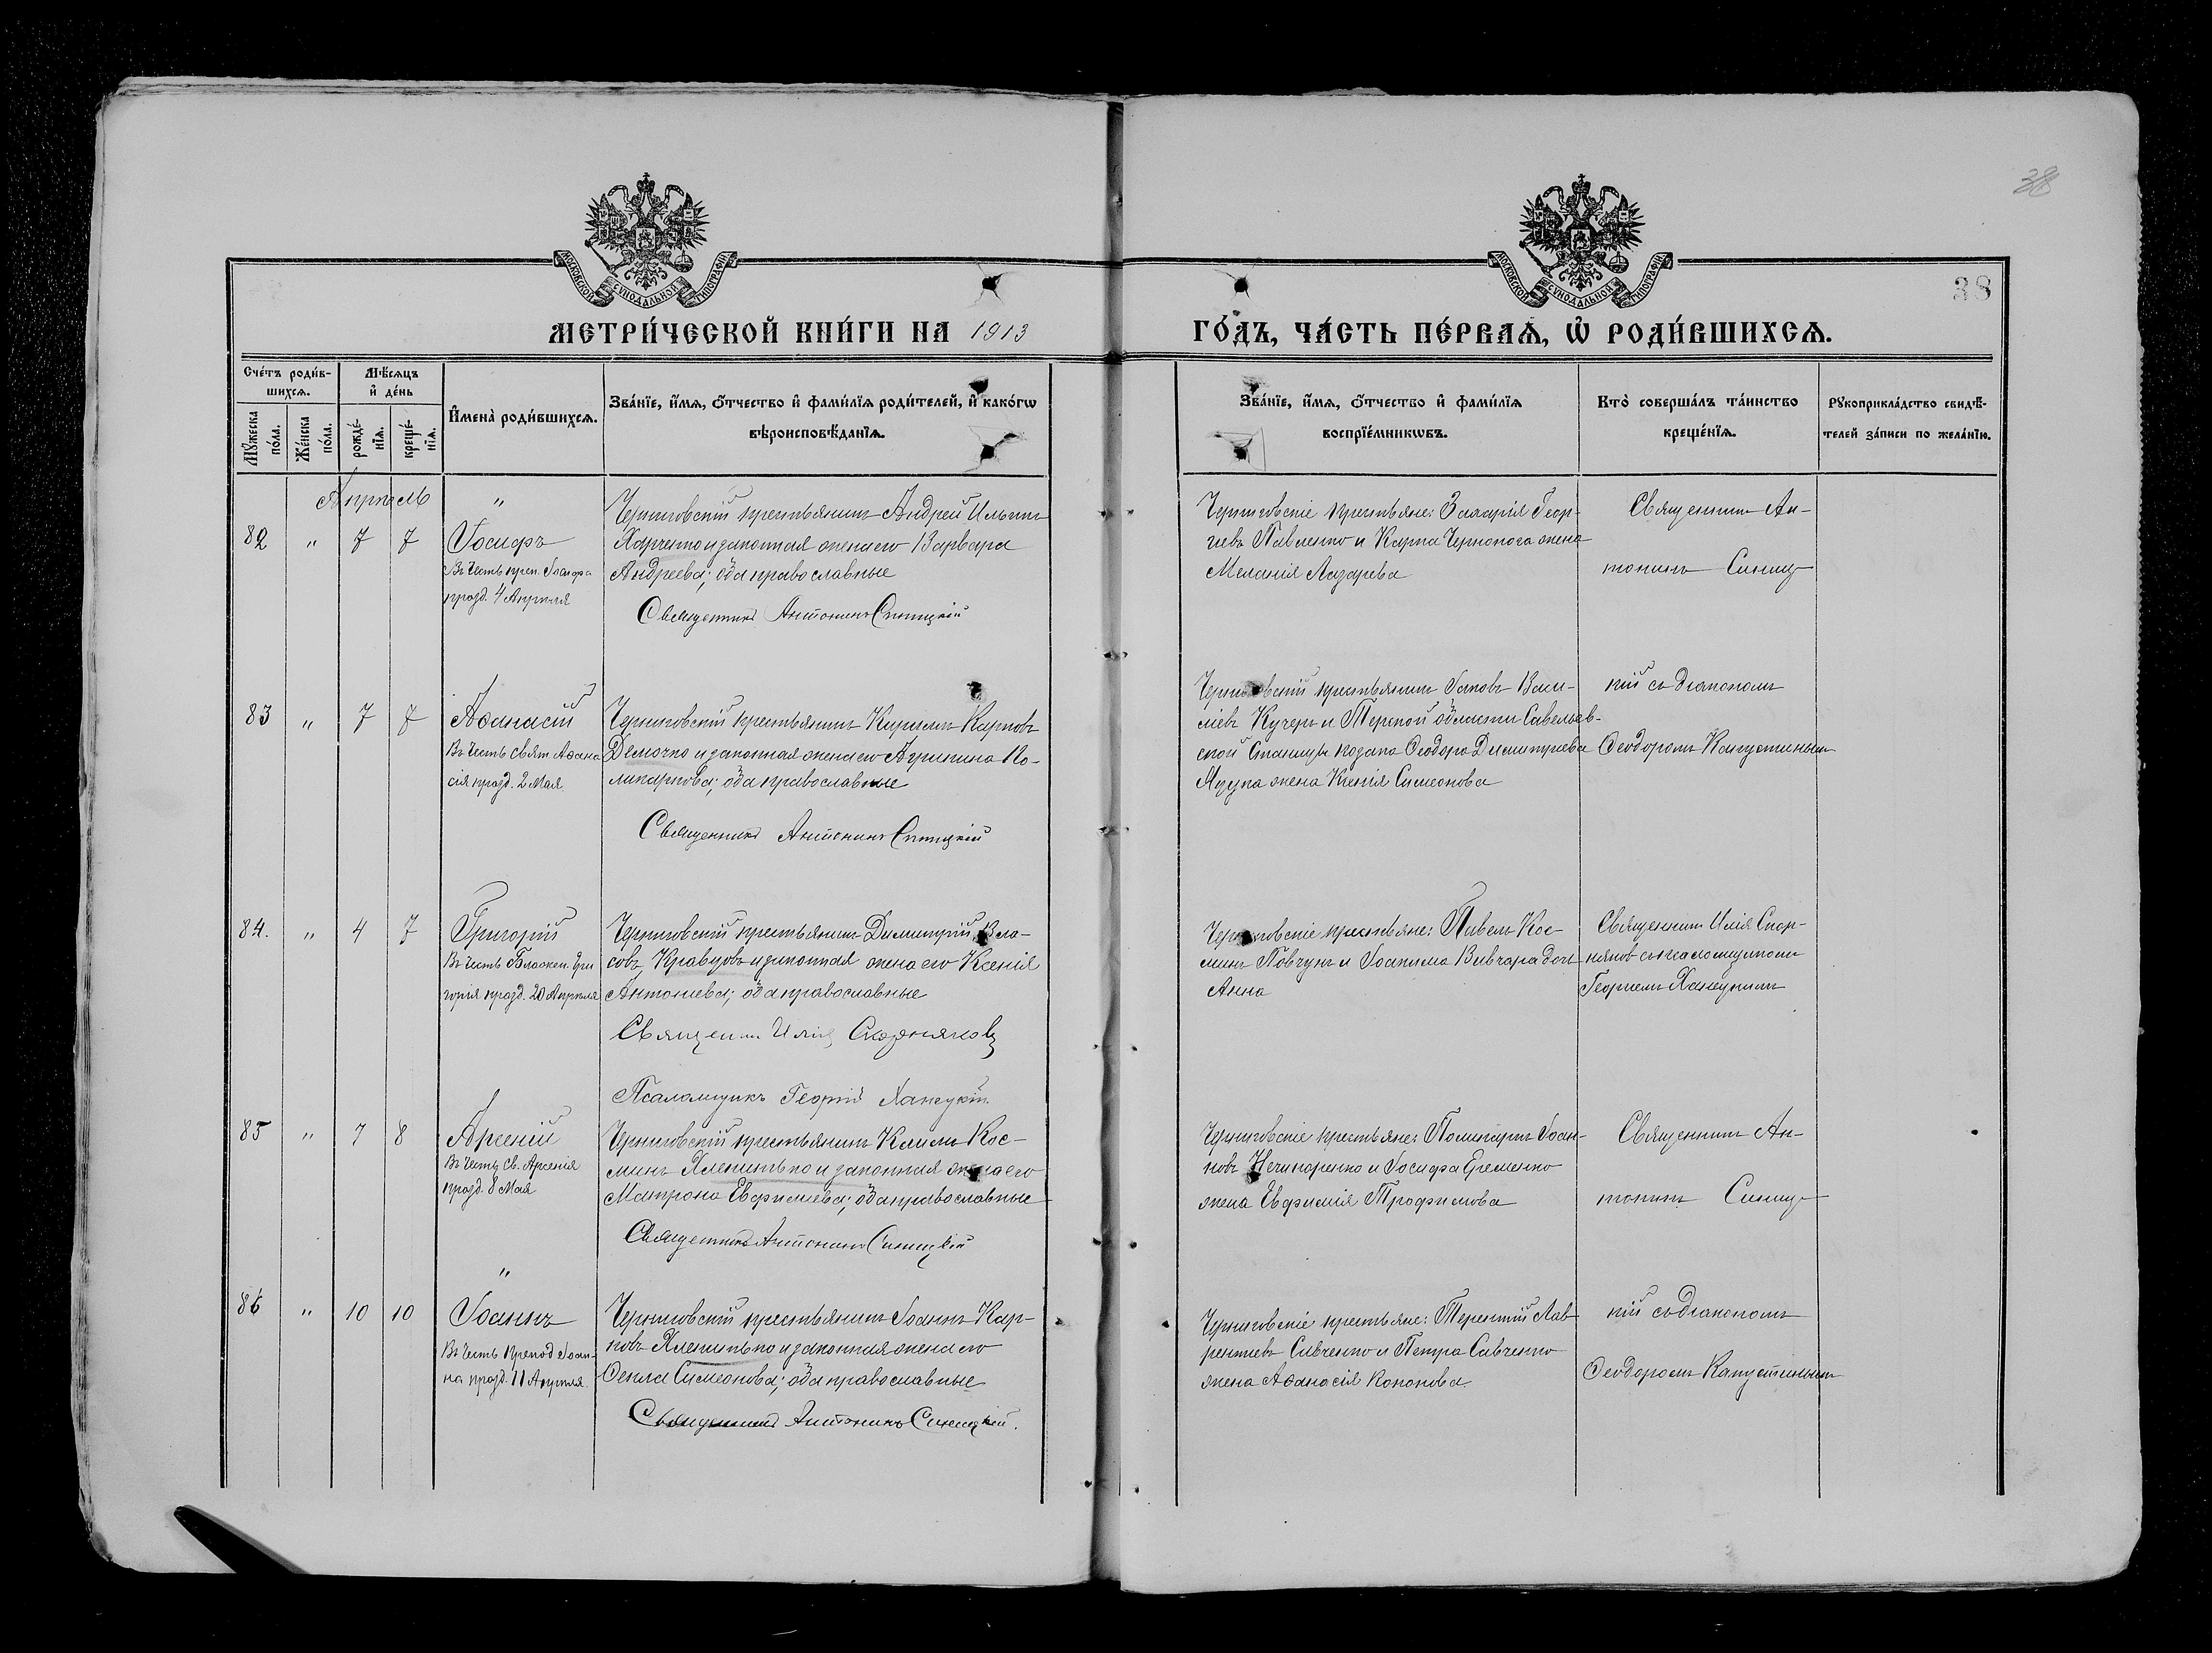 38
38
МОСКОВСКОЙ СѴНОДАЛЬНОЙ ТИПОГРАФІИ
МОСКОВСКОЙ СѴНОДАЛЬНОЙ ТИПОГРАФІИ
МЕТРИ́ЧЕСКОЙ КНИ́ГИ НА 1913
ГО́ДЪ, ЧА́СТЬ ПЕ́РВАѦ, Ѡ҆ РОДИ́ВШИХСѦ.
Сче́тъ роди́в-
шихсѧ.
Мꙋ́жеска
по́ла.
Же́нска
по́ла.
Мѣ́сѧцъ
и҆ де́нь
рожде́-
нїѧ.
креще́-
нїѧ.
И҆мена̀ роди́вшихсѧ.
Зва́нїе, и҆́мѧ, ѻ҆́тчество и҆ фамилїѧ роди́телей, и҆ како́гѡ
вѣроисповѣ́данїѧ.
Зва́нїе, и҆́мѧ, ѻ҆́тчество и҆ фами́лїѧ
воспрїе́мникѡвъ.
Кто̀ соверша́лъ та́инство
креще́нїѧ.
Рꙋкоприкла́дство свидѣ́-
телей за́писи по жела́нїю.
Апрѣль
82 " 7 7
Іосифъ
Въ честь преп. Іосифа
празд. 4 Апрѣля
Черниговскій крестьянинъ Андрей Ильинъ
Харченко и законная жена его Варвара
Андреева; оба православные
Священникъ Антонинъ Синицкій
Черниговскіе крестьяне: Захарія Геор-
гіевъ Павленко и Карпа Чернонога жена
Меланія Лазарева
Священникъ Ан-
тонинъ Синиц-
83 " 7 7
Аѳанасій
Въ честь свят. Аѳана
сія празд. 2 Мая.
Черниговскій крестьянинъ Кириллъ Карповъ
Демочко и законная жена его Агрипина По-
ликарпова; оба православные
Священникъ Антонинъ Синицкій
Черниговскій крестьянинъ Іаковъ Васи-
ліевъ Кучеръ и Терской области Савельев-
ской станицы козака Ѳеодора Димитріева
жена Ксенія Симеонова
кій съ діакономъ
Ѳеодоромъ Капустинымъ
84. " 4 7
Григорій
Въ честь Блажен. Гри
горія празд. 20 Апрѣля
Черниговскій крестьянинъ Димитрій Вла-
совъ Кравцовъ и законная жена его Ксенія
Антоніева; оба православные
Священн. Илія Скорняковъ
Псаломщикъ Георгій Ханецкій
Черниговскіе крестьяне: Павелъ Кос-
минъ Повчунъ и Іоакима Вивчара дочь
Анна
Священникъ Илія Скор-
няковъ съ псаломщикомъ
Георгіемъ Ханецкимъ
85 " 7 8
Арсеній
Въ честь Св. Арсенія
празд. 8 Мая
Черниговскій крестьянинъ Климъ Кос-
минъ Хленитько и законная жена его
Матрона Евфиміева; оба православные
Священникъ Антонинъ Синицкій
Черниговскіе крестьяне: Поликарпъ Іоан-
новъ Нечипоренко и Іосифа Еременко
жена Евфимія Трофимова
Священникъ Ан-
тонинъ Синиц-
86 " 10 10
Іоаннъ
Въ честь препод. Іоан-
на празд. 11 Апрѣля.
Черниговскій крестьянинъ Іоаннъ Кар-
повъ Хленитько и законная жена его
Ѳекла Симеонова; оба православные
Священникъ Антонинъ Синицкій.
Черниговскіе крестьяне: Терентій Лав-
рентіевъ Савченко и Петра Савченко
жена Аѳанасія Кононова.
кій съ Діакономъ
Ѳеодоромъ Капустинымъ